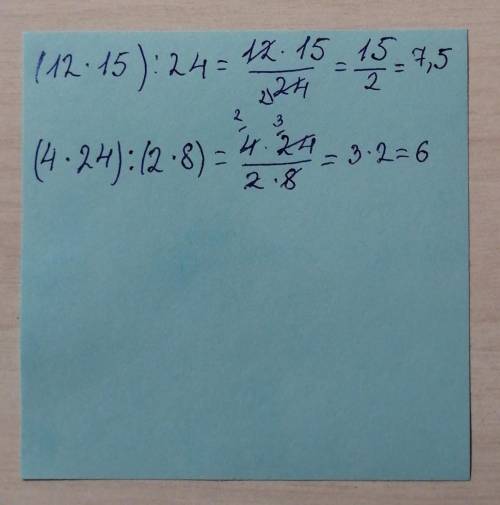 (12·15):24 = 12·15/24 = 15/2 = 7,5
(4·24):(2·8) = 4·24/2·8 = 3·2 = 6